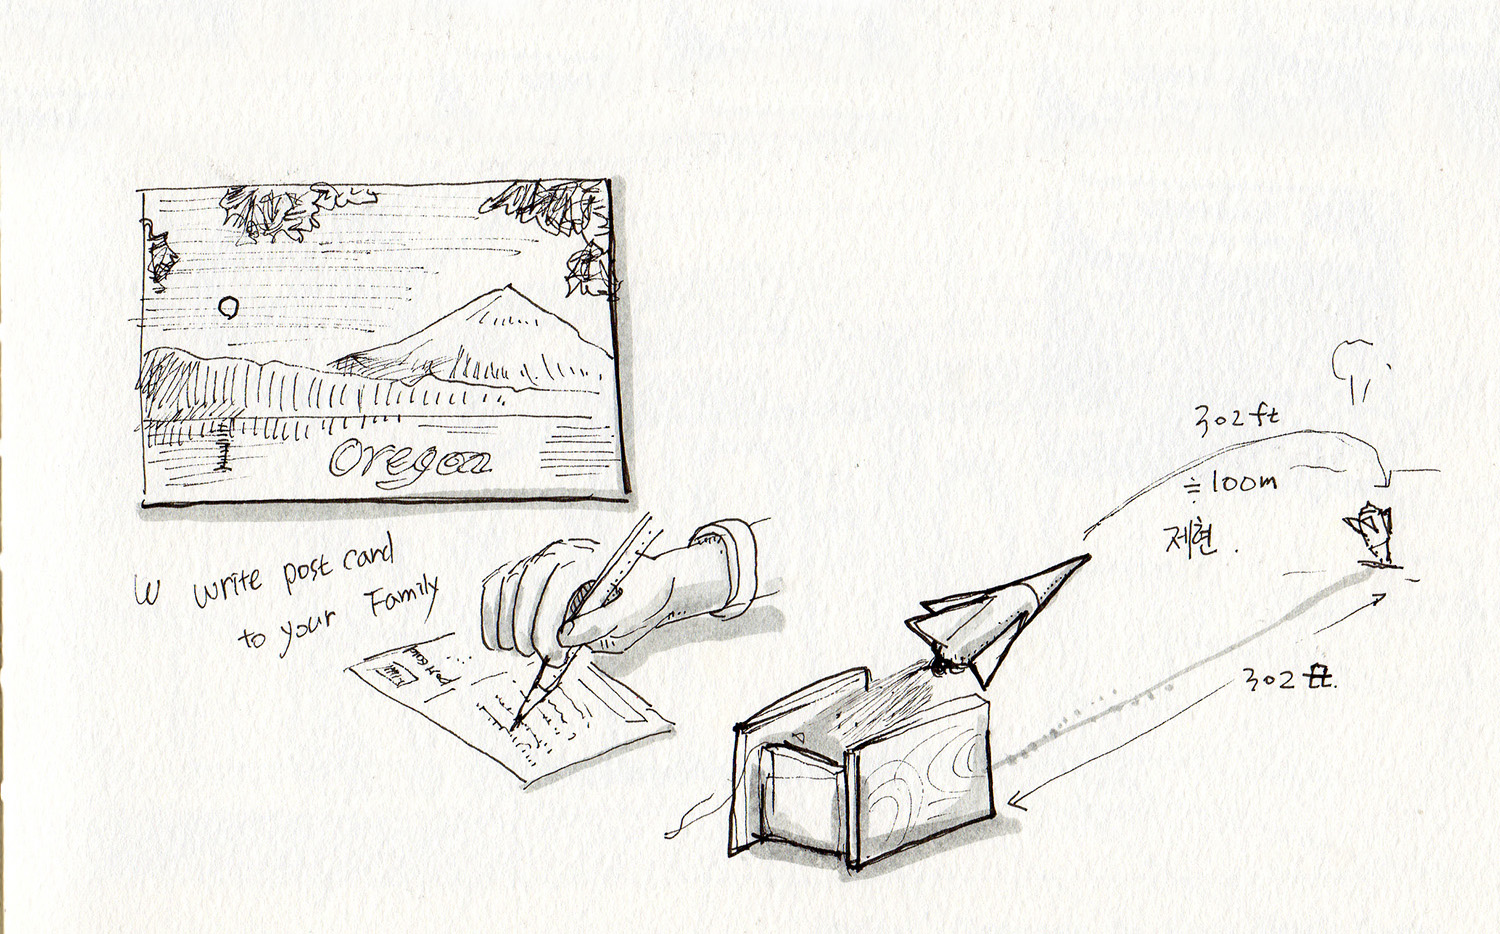 Oregon
W write post card
to your Family
post card
302 ft
≒ 100m
제현.
302 ft.